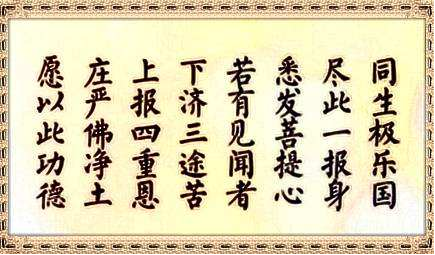 愿以此功德
庄严佛净土
上报四重恩
下济三途苦
若有见闻者
悉发菩提心
尽此一报身
同生极乐国